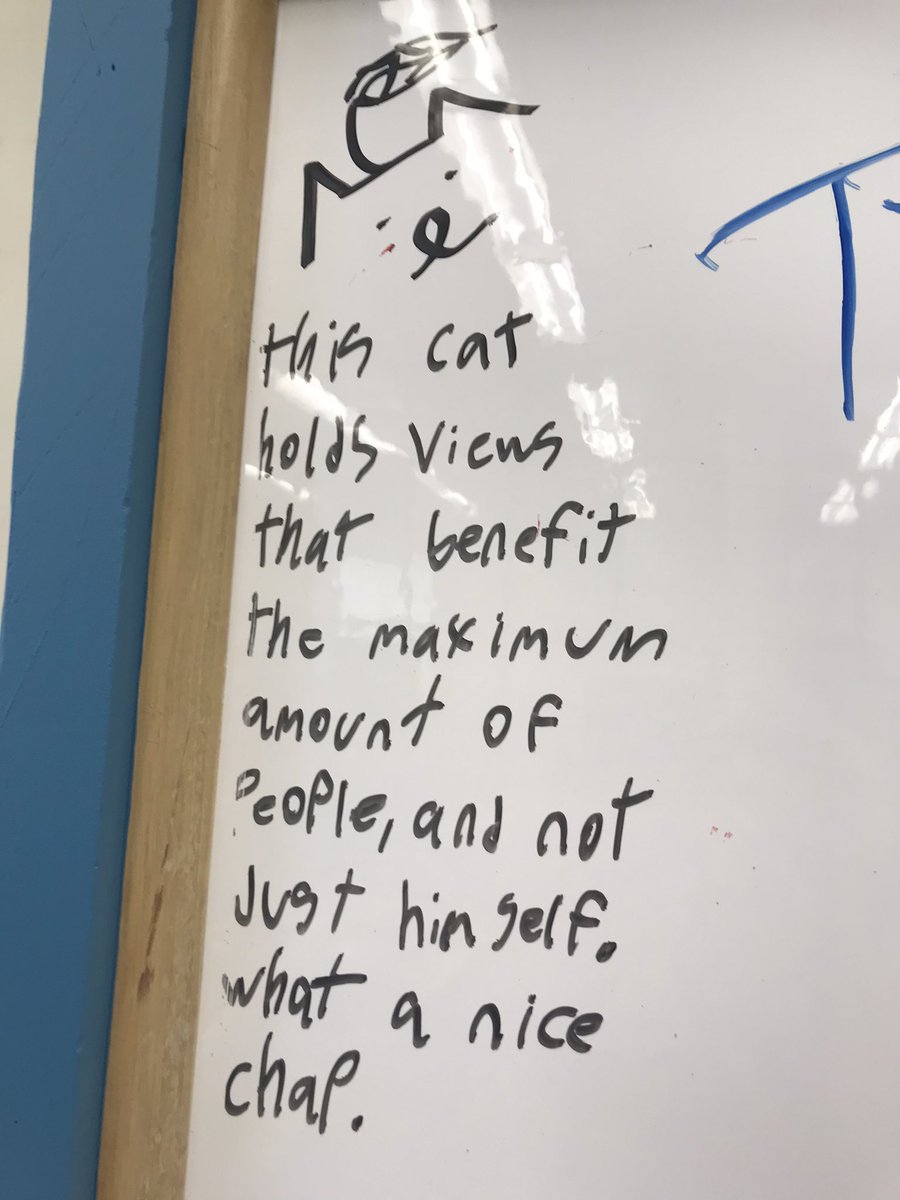 this cat
holds views
that benefit
the maximum
amount of
people, and not
just himself.
what a nice
chap.
T